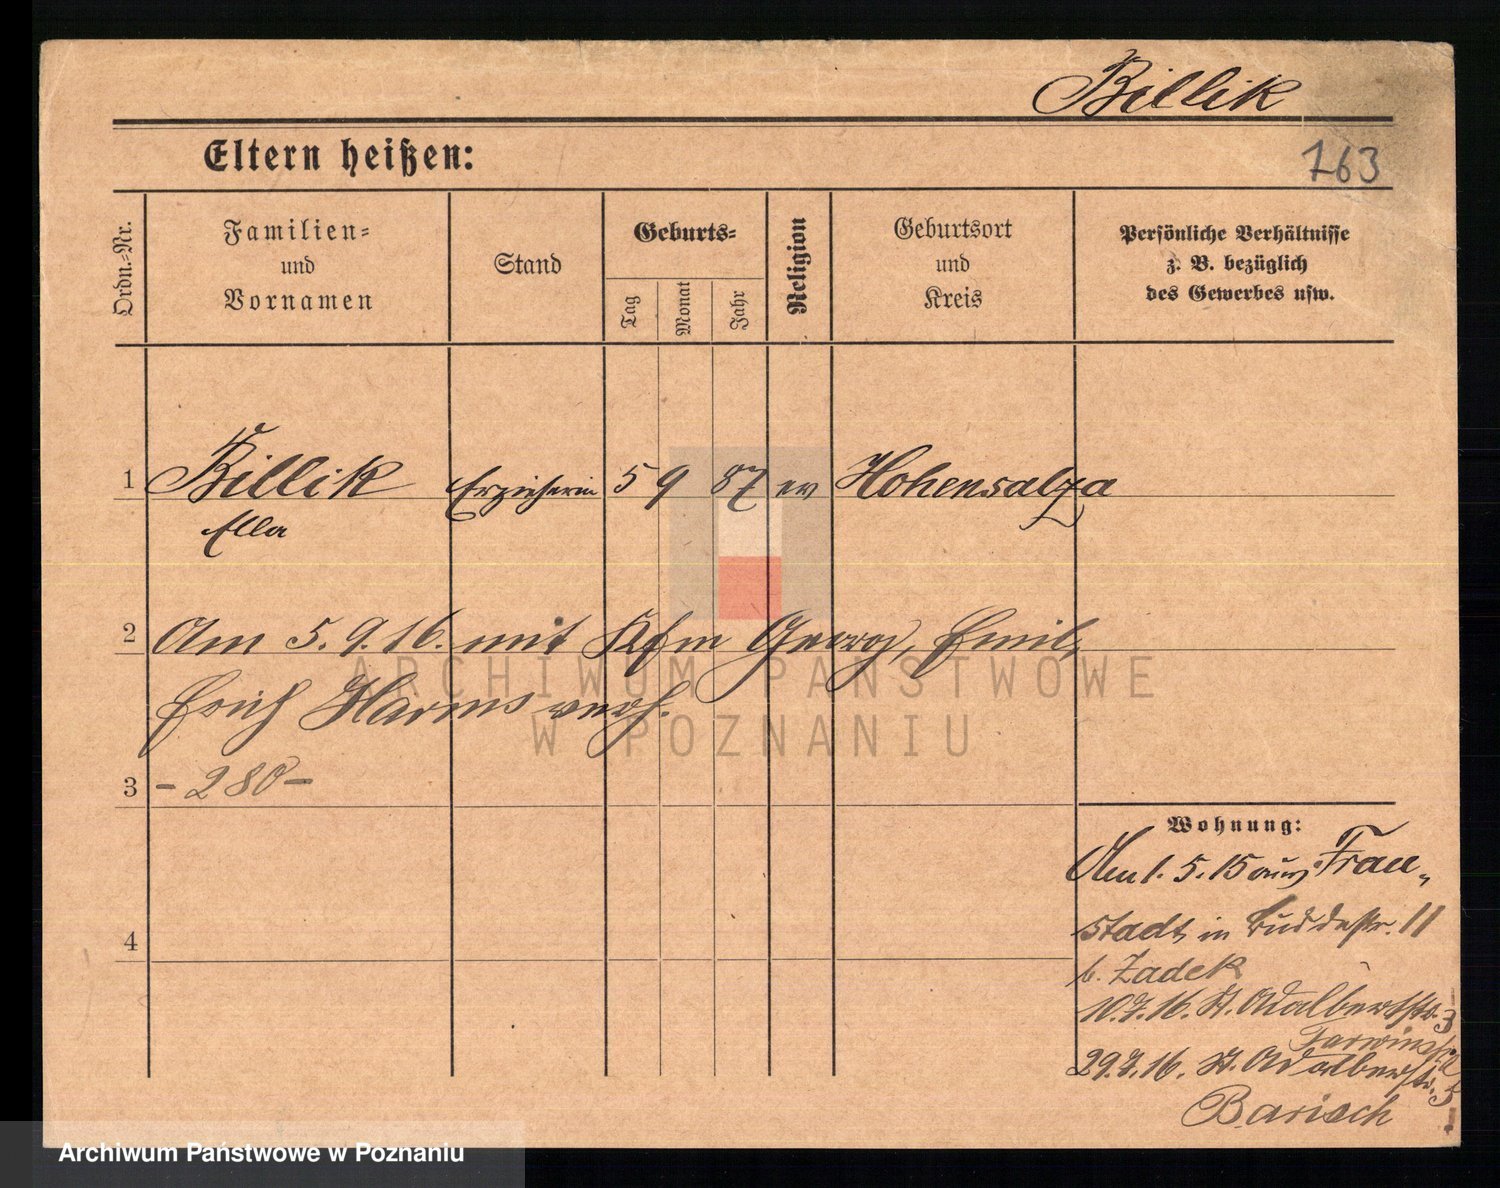 Billik
163
Eltern heißen:
Ordn.=Nr.
Familien=
und
Vornamen
Stand
Geburts=
Tag
Monat
Jahr
Religion
Geburtsort
und
Kreis
Persönliche Verhältnisse
z. B. bezüglich
des Gewerbes usw.
1 Billik Erzieherin 5 9 87 ev Hohensalza
Ella
2 Am 5.9.16. mit Kfm Georg, Emil,
Erich Harms verh.
3 - 280 -
4
Wohnung:
Am 1. 5. 15 aus Frau„
stadt in Buddestr. 11
b. Zadek
10.7.16. St. Adalbertstr. 3
29.7.16. St. Adalbertstr. 5
Barisch
ARCHIWUM PAŃSTWOWE
W POZNANIU
Archiwum Państwowe w Poznaniu